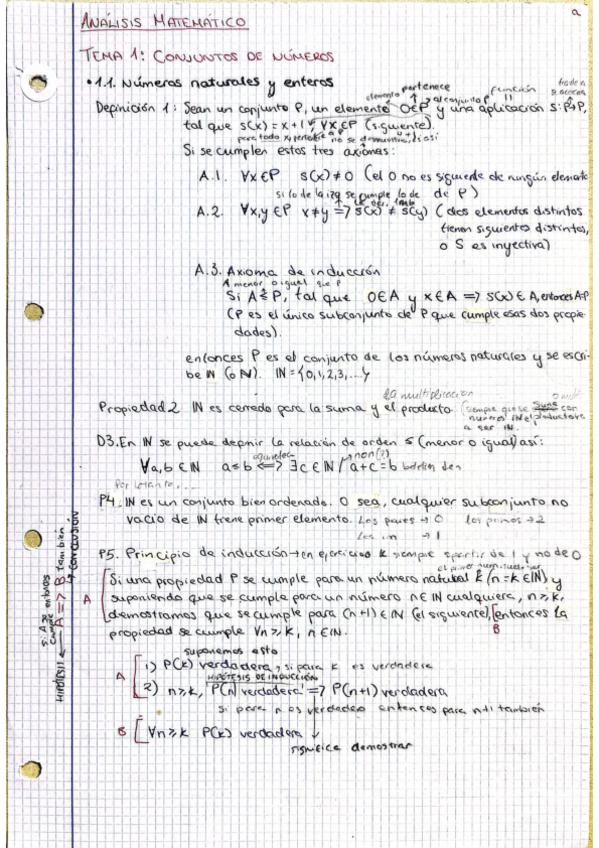 a
ANÁLISIS MATEMÁTICO
TEMA 1: CONJUNTOS DE NÚMEROS
• 1.1. Números naturales y enteros
elemento pertenece al conjunto P función
Definición 1: Sean un conjunto P, un elemento 0∈P y una aplicación S: P→P,
tal que s(x) = x+1, ∀x∈P (siguiente).
para todo x, perteneciente a
Si se cumplen estos tres axiomas:
A.1. ∀x∈P s(x)≠0 (el 0 no es siguiente de ningún elemento
de P)
si lo de la izq se cumple lo de
A.2. ∀x,y∈P x≠y => s(x) ≠ s(y) (dos elementos distintos
tienen siguientes distintos,
o S es inyectiva)
A.3. Axioma de inducción
A menor o igual que P
Si A≤P, tal que 0∈A y x∈A => s(x)∈A, entonces A=P
(P es el único subconjunto de P que cumple esas dos propie-
dades).
entonces P es el conjunto de los números naturales y se escri-
be IN (o N). IN={0,1,2,3,...}
la multiplicación
Propiedad 2 IN es cerrado para la suma y el producto. (siempre que se sume con
a ser IN.
D3. En IN se puede definir la relación de orden ≤ (menor o igual) así:
∀a,b∈IN a≤b <=> ∃c∈IN / a+c=b
Por lo tanto, ...
P4. IN es un conjunto bien ordenado. O sea, cualquier subconjunto no
vacío de IN tiene primer elemento. Los pares → 0 los primos → 2
Los in → 1
P5. Principio de inducción → en ejercicios k siempre a partir de 1 y no de 0
A Si una propiedad P se cumple para un número natural k (n=k∈IN) y
suponiendo que se cumple para un número n∈IN cualquiera, n≥k,
demostramos que se cumple para (n+1)∈IN (el siguiente), entonces la
propiedad se cumple ∀n≥k, n∈IN.
B
suponemos esto
A 1) P(k) verdadera, si para k es verdadera
HIPÓTESIS DE INDUCCIÓN
2) n≥k, P(n) verdadera => P(n+1) verdadera
si para n es verdadera entonces para n+1 también
B ∀n≥k P(k) verdadera
significa demostrar
HIPÓTESIS ← A => B → CONCLUSIÓN
si A se cumple entonces B también